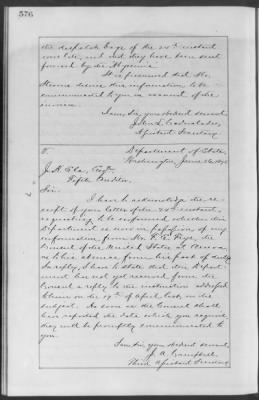 576
the despatch bags of the 24th instant
were late, and not they have been sent
forward by the Abyssinia.
It is presumed that the
Messrs desire this information to be
communicated to you on account of the
I am, Sir, your obedient servant,
John L. Cadwalader,
Assistant Secretary.
Department of State,
Washington, June 26, 187
J. H. Ela, Esqre.
Fifth Auditor.
Sir:
I have to acknowledge the re-
ceipt of your letter of the 24th instant,
requesting to be informed whether this
Department is now in possession of any
information from Mr. F. E. Frye, the
Consul of the United States at Omoa,
as to his absence from his post of duty.
In reply, I have to state that this Depart-
ment has not yet received from the
Consul a reply to the instruction addressed
to him on the 19th of April last, on the
subject. As soon as the Consul shall
have reported the date which you require,
they will be promptly communicated to
you.
I am, Sir, your obedient servant,
J. A. Campbell
Third Assistant Secretary.